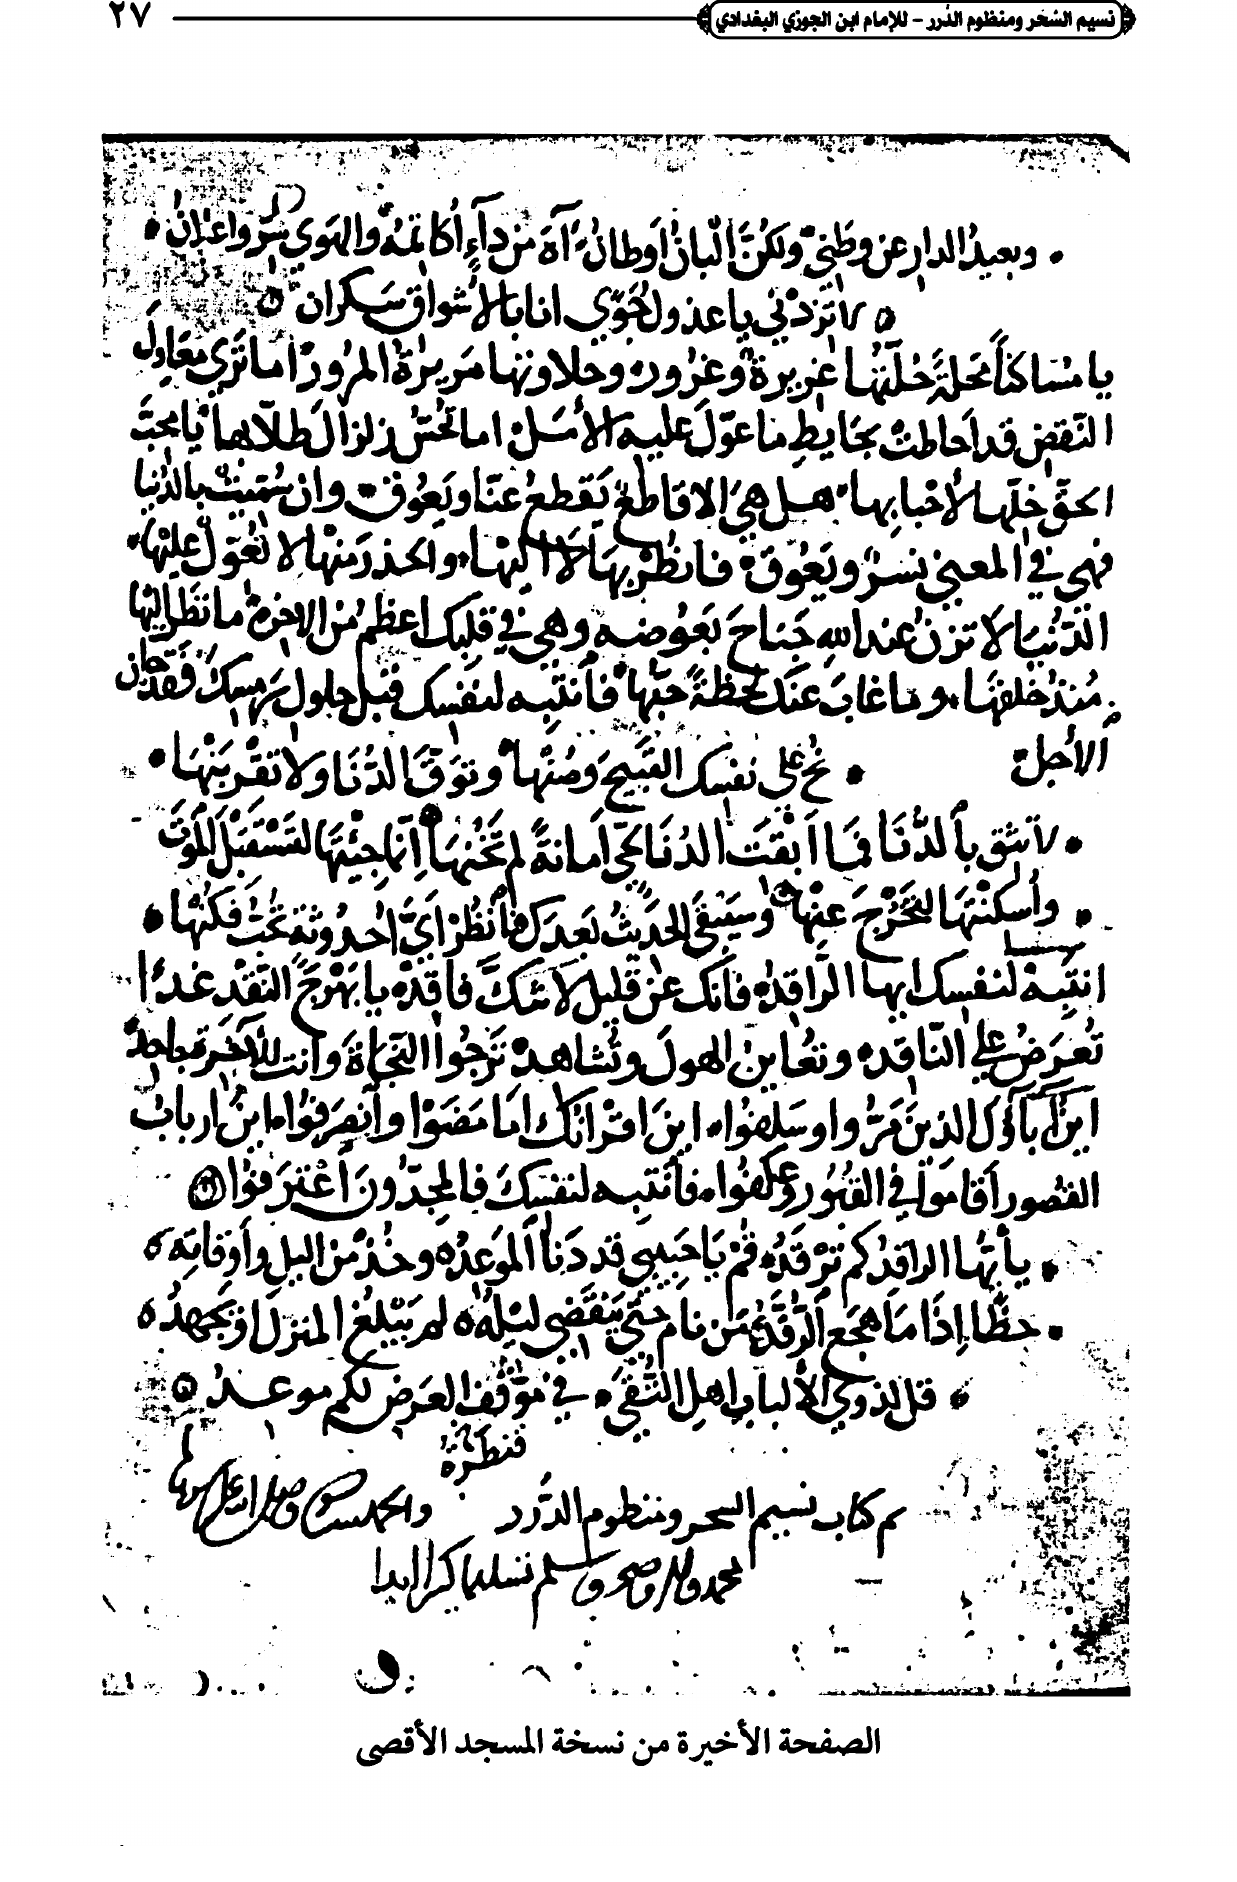 نسيم السّحر ومنظوم الدّرر - للإمام ابن الجوزي البغدادي ٢٧
وبعيدُ الدار عن وطني ولكن البانُ اوطانُ آه من دآءٍ أكاتمهُ والهوى سرٌ واعلان
لا تزدني يا عذول جوى انا بالأشواق سكران
يا مساكناً محلة خلتها عزيزة وغرور وحلاوتها مريرة المرور اما ترى معاول
النّقض قد احاطت بحايط ما عوّل عليه الأمل اما تحس زلزال طلابها يا محب
الحقّ خلّها لأحبابها هل هي الا قاطع يقطع عنا ويعوق وان سميت بالدُنيا
فهي في المعنى نسر ويعوق فانظر بها لا اليها والحذر منها لا تعوّل عليها
الدّنيا لا تزن عند الله جناح بعوضه وهي في قلبك اعظم من الاخرة ما نظر اليها
منذ خلقها وما غاب عنك لحظة حبّها فأنتبه لنفسك قبل حلول رمسك فقد حان
الأجل نح على نفسك القبيح وصنها وتوقّ الدُّنَا ولا تقربنها
لا تثق بالدُّنَا فما ابقت الدُنا لحي امانةً لم تخُنها انما جئتها لتستقبل الموت
وأسكنتها لتخرج عنها وسيبقى الحديث بعدك فأنظر أيَّ احدوثة تحب فكنها
انتبه لنفسك ايها الرّاقد فانك عن قليل لا شك فاقد يا بهرج النّقد غداً
تُعرض على الناقد وتعاين الهول وتُشاهد ترجُوا النجاة وانت للآخرة جاحد
اين آباؤك الذين مرُّوا وسلفوا اين اقرانك اما مضوا وأنصرفوا اين ارباب
القصور اقاموا في القبُور وعكفوا فأنتبه لنفسك فالمجدّون أعترفوا
يأيّها الراقدُ كم ترقدُ قم يا حبيبي قد دنا الموعدُ وخذ من اليل وأوقاته
حظًّا إذا ما هجع الرّقّدُ من نام حتّى ينقضي ليلهُ لم يبلغ المنزل او يجهدُ
قل لذوي الألباب اهل التُّقى في موقف العرض لكم موعدُ
تم كتاب نسيم السحر ومنظوم الدّرر والحمد لله وصلى الله على سيدنا
محمد واله وصحبه وسلم تسليما كثيرا ابدا
الصفحة الأخيرة من نسخة المسجد الأقصى